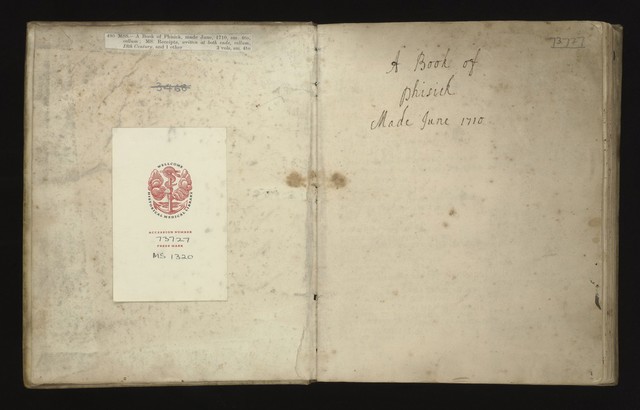 A Book of Phisick, made June, 1710, sm. 4to,
vellum; MS. Receipts, written at both ends, vellum,
18th Century, and 1 other 2 vols, sm. 4to.
3486
WELLCOME
HISTORICAL MEDICAL LIBRARY
ACCESSION NUMBER
73727
PRESS MARK
MS 1320
A Book of
phisick
Made June 1710.